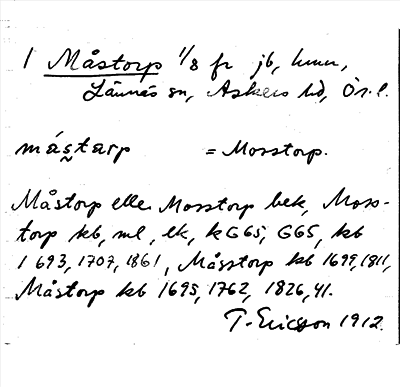 1 Måstorp 1/8 fr jb, hmn,
Lännäs sn, Askers hd, Ör. l.
mástarp = Mosstorp.
Måstorp eller Mosstorp bek, Moss-
torp kb, ml, lk, kG65, G65, kb
1693, 1707, 1861, Måsstorp kb 1699, 1811,
Måstorp kb 1695, 1762, 1826, 41.
T. Ericsson 1912.